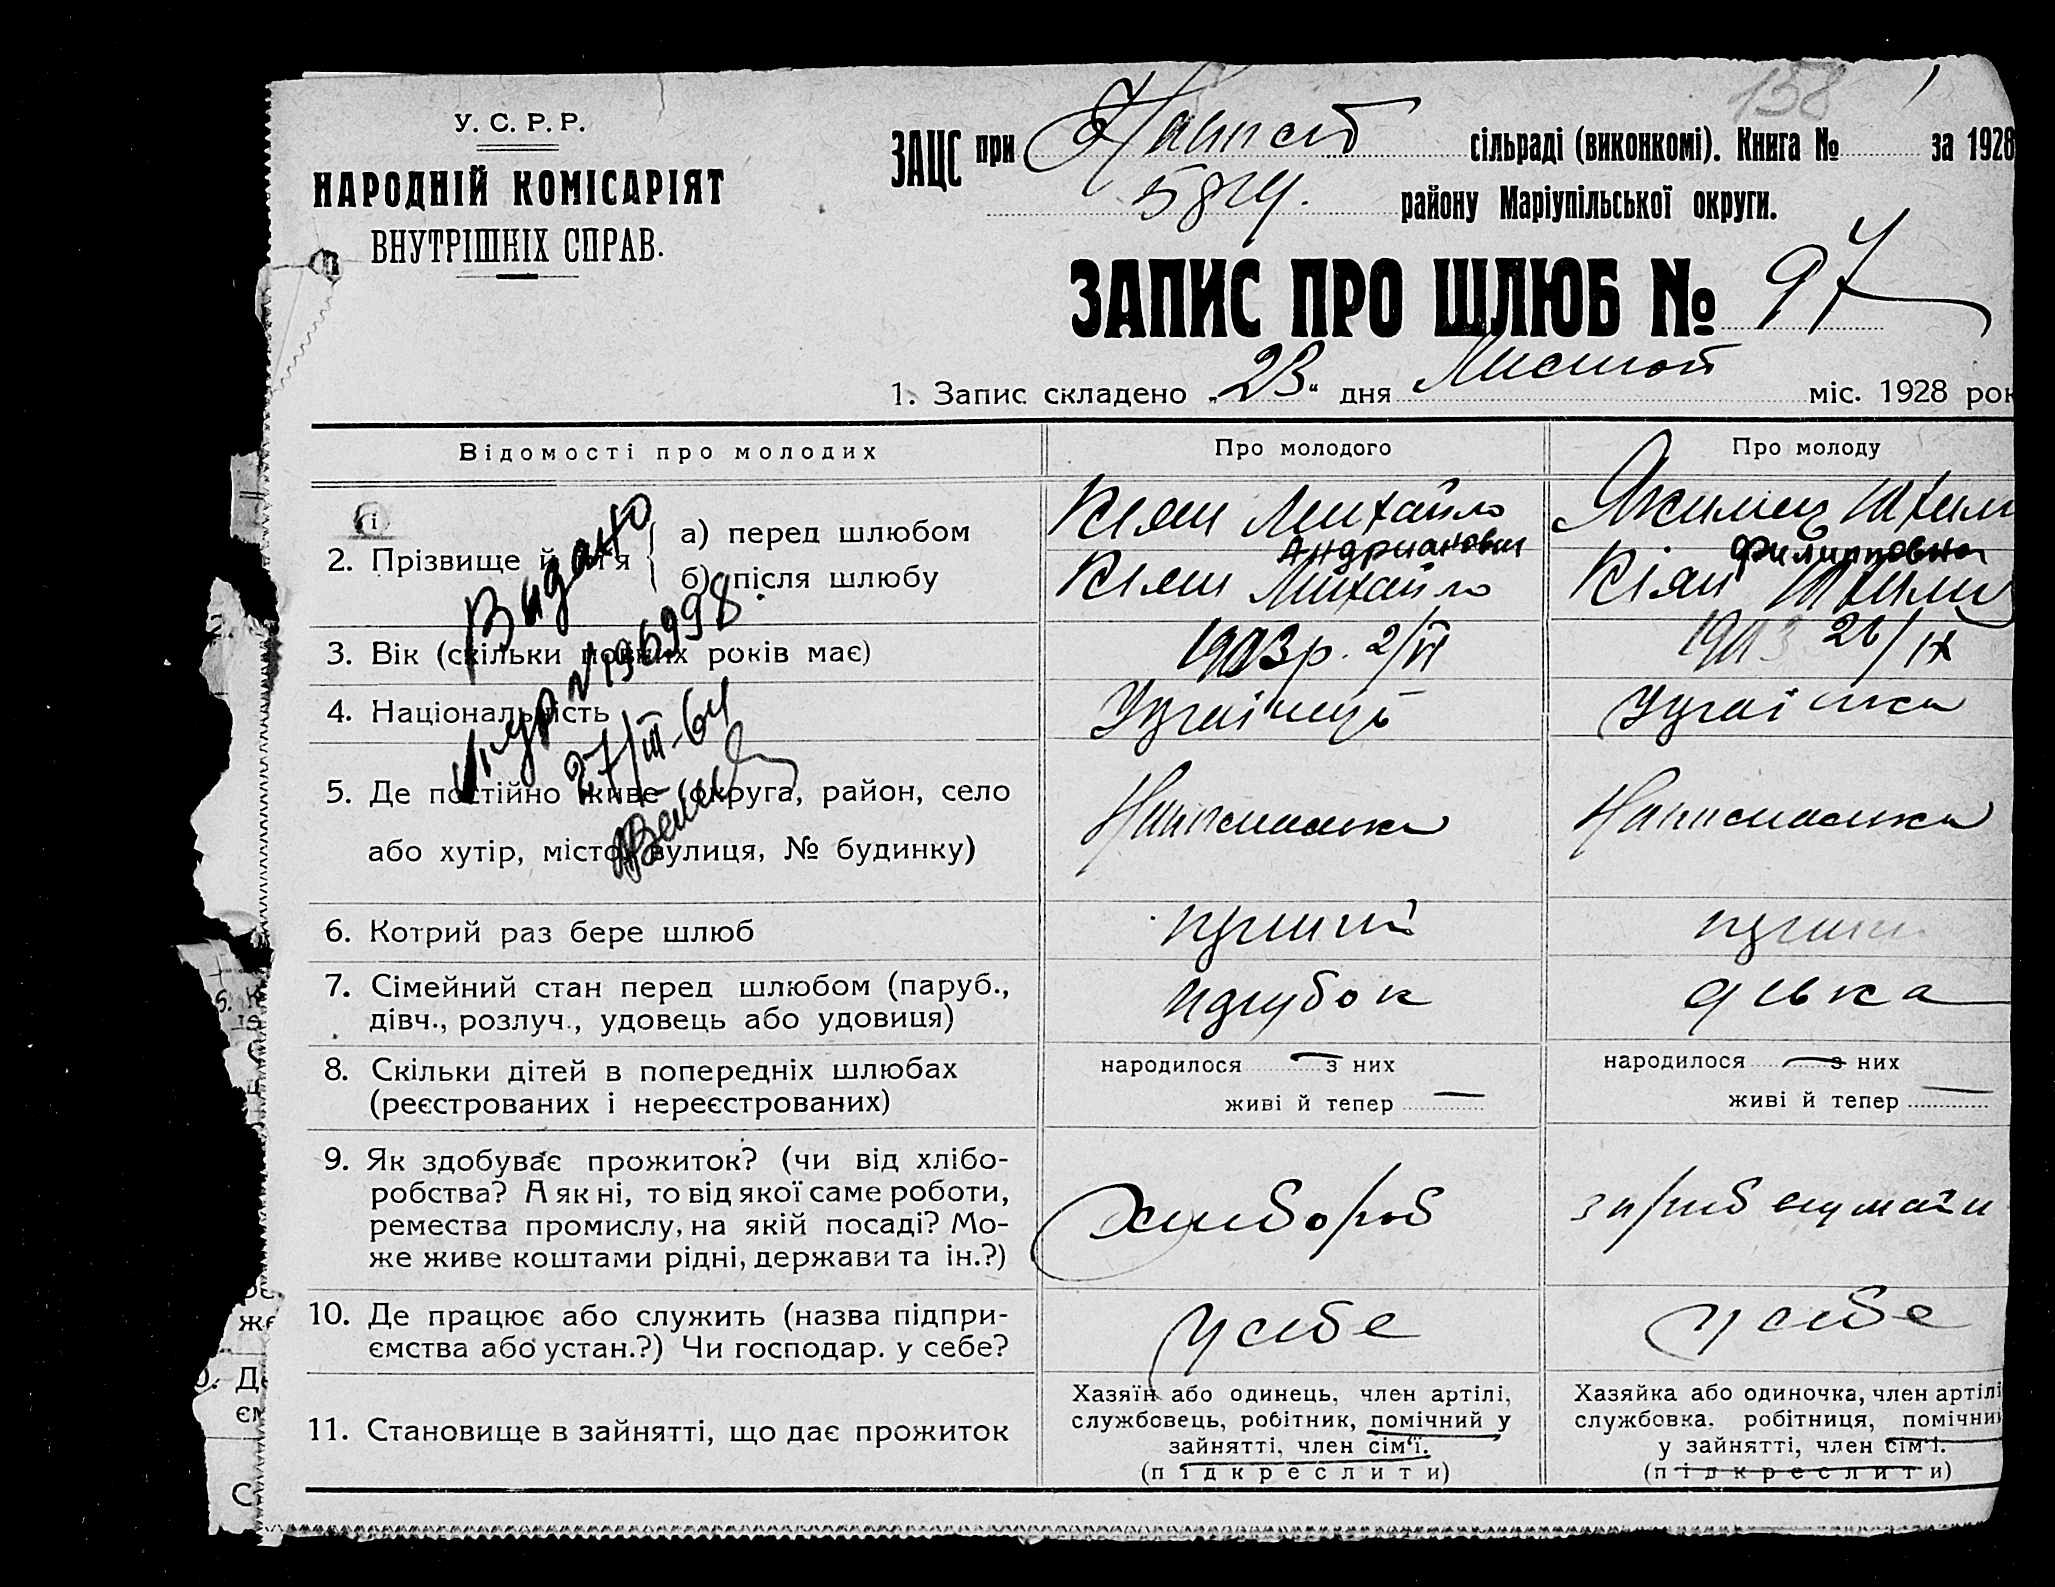 158
У. С. Р. Р.
НАРОДНІЙ КОМІСАРІЯТ
ВНУТРІШНІХ СПРАВ.
ЗАЦС при сільраді (виконкомі). Книга № за 1928
району Маріупільської округи.
ЗАПИС ПРО ШЛЮБ № 97
1. Запис складено „23“ дня Листоп міс. 1928 рок
Відомості про молодих
Про молодого
Про молоду
2. Прізвище й ім'я
а) перед шлюбом
б) після шлюбу
Кіян Михайло
Андрианович
Кіян Михайло
Якимец
Филипповна
Кіян
3. Вік (скільки повних років має)
1903 р. 2/VI
1903 26/IX
4. Національність
Украінець
Украінка
5. Де постійно живе (округа, район, село
або хутір, місто, вулиця, № будинку)
6. Котрий раз бере шлюб
перший
перший
7. Сімейний стан перед шлюбом (паруб.,
дівч., розлуч., удовець або удовиця)
парубок
дівка
8. Скільки дітей в попередніх шлюбах
(реєстрованих і нереєстрованих)
народилося — з них
живі й тепер —
народилося — з них
живі й тепер —
9. Як здобуває прожиток? (чи від хлібо-
робства? А як ні, то від якої саме роботи,
ремества промислу, на якій посаді? Мо-
же живе коштами рідні, держави та ін.?)
Хлибороб
10. Де працює або служить (назва підпри-
ємства або устан.?) Чи господар. у себе?
у себе
у себе
11. Становище в зайнятті, що дає прожиток
Хазяїн або одинець, член артілі,
службовець, робітник, помічний у
зайнятті, член сім'ї.
(підкреслити)
Хазяйка або одиночка, член артілі
службовка, робітниця, помічни
у зайнятті, член сім'ї.
(підкреслити)
Видано
№ 196998.
27/III-64